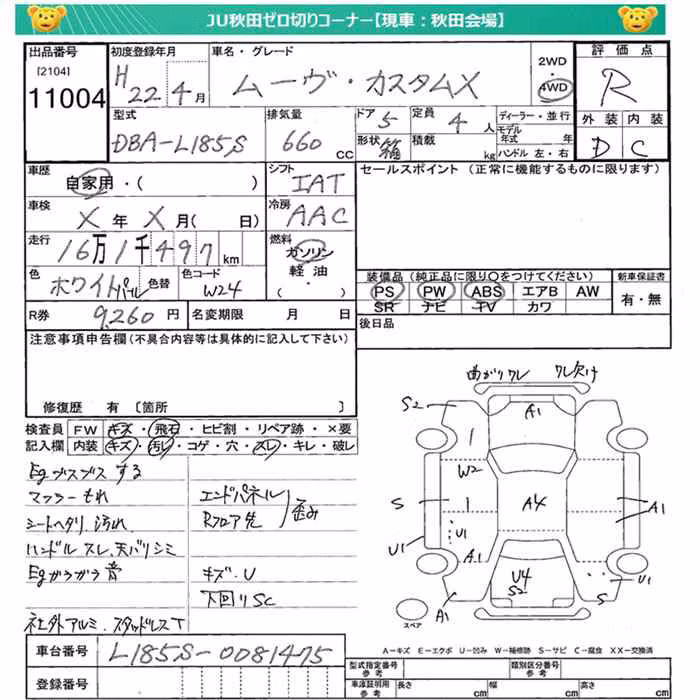 JU秋田ゼロ切りコーナー【現車：秋田会場】
出品番号
[2104]
11004
初度登録年月
H 22年 4月
車名・グレード
ムーヴ・カスタムX
2WD
・
4WD
評価点
R
外装 内装
D C
型式
DBA-L185S
排気量
660 CC
ドア 5
定員 4 人
形状 箱
積載 kg
ディーラー・並行
モデル年式 年
ハンドル 左・右
車歴
自家用・( )
シフト
IAT
セールスポイント (正常に機能するものに限ります)
車検
X 年 X 月( 日)
冷房
AAC
走行
16万1千497km
燃料
ガソリン
軽油・
( )
色
ホワイトパール
色替
色コード
W24
装備品 (純正品に限り○をつけてください)
PS PW ABS エアB AW
SR ナビ TV カワ
新車保証書
有・無
R券 9,260 円
名変期限 月 日
後日品
注意事項申告欄(不具合内容等は具体的に記入して下さい)
修復歴 有 [箇所 ]
検査員記入欄
FW キズ・飛石・ヒビ割・リペア跡・×要
内装 キズ・汚レ・コゲ・穴・スレ・キレ・破レ
Egブスブスする
マフラーもれ
シートヘタリ、汚れ
ハンドルスレ、天バリシミ
Egガラガラ音
社外アルミ、スタッドレスT
エンドパネル
Rフロア先
歪み
キズ・U
下回りSC
曲がりワレ
ワレ欠け
S2
A1
W2
S
A4
A1
U1
U1
A1
U4
S2
U1
S
A1
スペア
A－キズ E－エクボ U－凹み W－補修跡 S－サビ C－腐食 XX－交換済
車台番号
L185S-0081475
登録番号
型式指定番号
参考
類別区分番号
参考
車庫証明用
参考
長さ cm
幅 cm
高さ cm